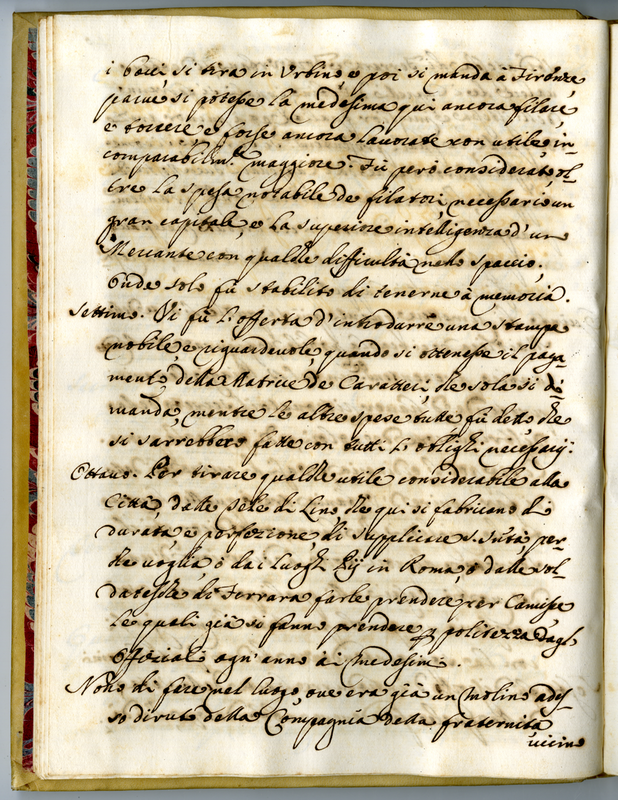 i bocci, si tira in Urbino, e poi si manda à Firenze,
parue, si potesse la medesima qui ancora filare,
e torcere, e forse ancora lauorare con utile in-
comparabilm.te maggiore. Fù però considerato, ol-
tre la spesa notabile de filatori, necessario un
gran capitale, e la superiore intelligenza d'un
Mercante con qualche difficultà nello spaccio,
Onde solo fù stabilito di tenerne à memoria.
Settimo. Vi fù l'offerta d'introdurre una stampa
nobile, e riguardeuole, quando si ottenesse il paga-
mento della Matrice de Caratteri, che sola si di-
manda, mentre le altre spese tutte fù detto che
si sarrebbero fatte con tutti l'oblighi necessarij.
Ottauo. Per tirare qualche utile considerabile alla
Città dalle tele di Lino che qui si fabricano di
durata, e perfezione, di supplicare S. S.tà, per-
che voglia, ò dai Luoghi Pij in Roma, ò dalle sol-
datesche di Ferrara farle prendere per Camise,
le quali già si fanno prendere politezza dagl'
Offiziali ogn'anno ai medesimi.
Nono di fare nel luogo, oue era già un Molino ades-
so diruto della Compagnia della fraternità
uicino